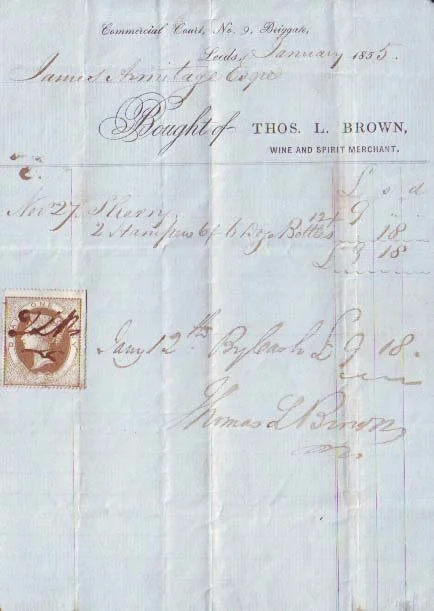 Commercial Court, No. 9, Briggate,
Leeds, January 1855.
James Armitage Esqre
Bought of THOS. L. BROWN,
WINE AND SPIRIT MERCHANT.
£ s d
Novr 27 Sherry 9 " "
2 Hampers 6/ 6 Doz Bottles 12/ 18
£ 9 18
ONE
TLB
Jany 12th By Cash £ 9 18 .
Thomas L Brown